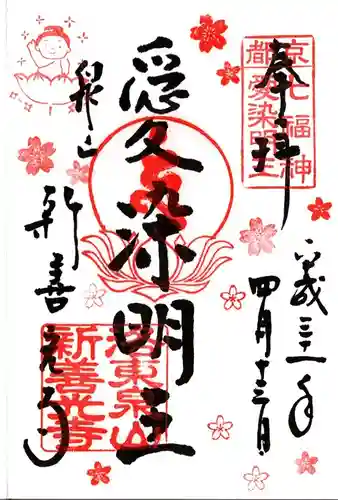 奉拝
京七福神
都愛染明王
平成三十一年
四月十三日
愛染明王
泉山
新善光寺
洛東泉山
新善光寺